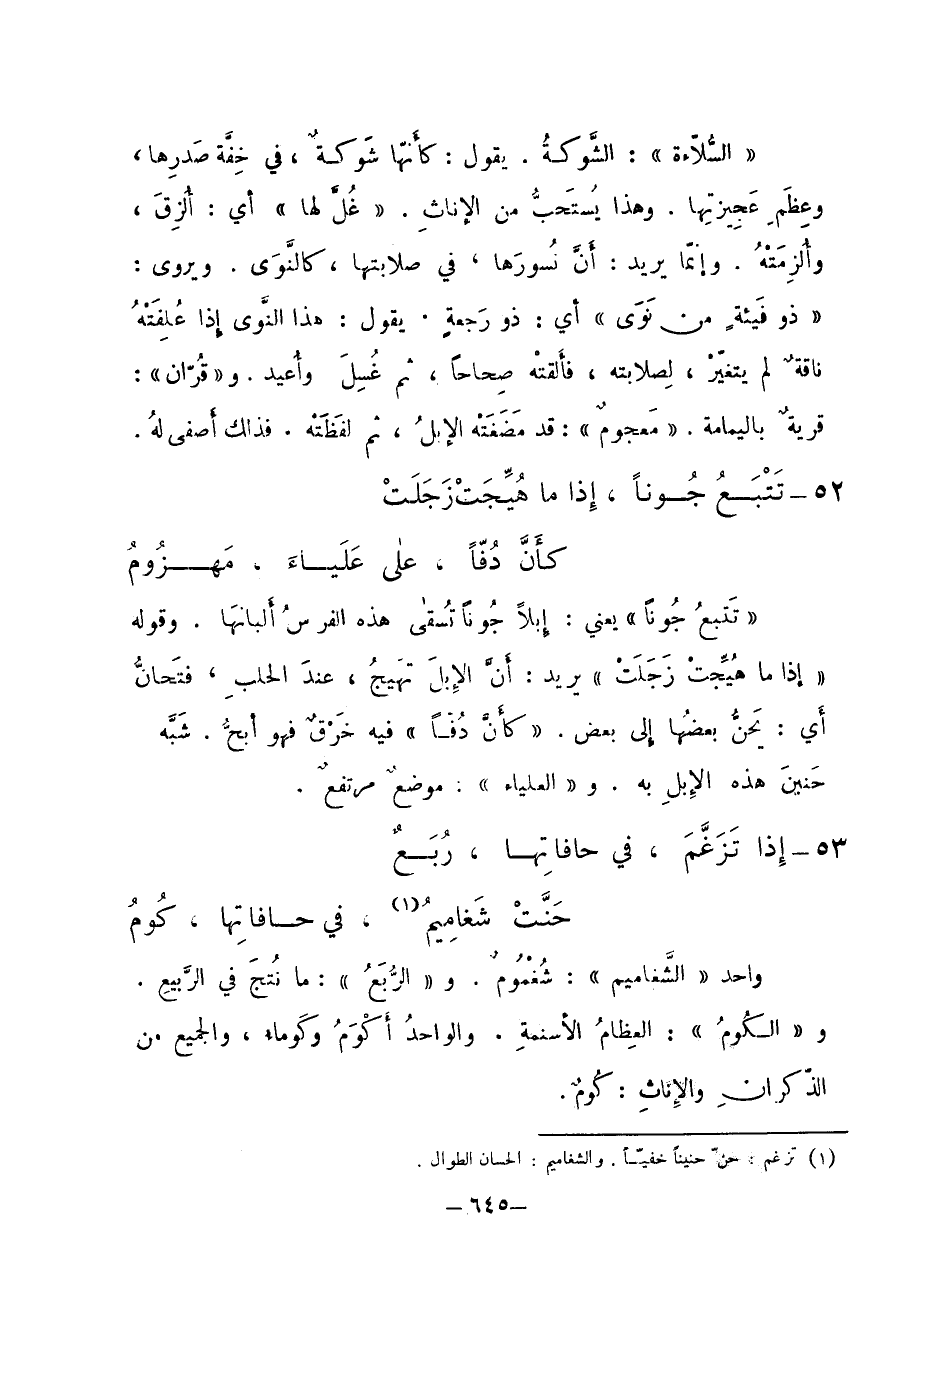 « السُّلاّءة » : الشَّوكةُ . يقول : كأنّها شَوكةٌ ، في خِفَّة صَدرِها ،
وعِظَمِ عَجِيزتِها . وهذا يُستَحبُّ من الإناثِ . « غُلَّ لها » أي : أُلزِقَ ،
وأُلزِمَتْهُ . وإنّما يريد : أنَّ نُسورَها ، في صلابتها ، كالنَّوَى . ويروى :
« ذو فَيئةٍ من نَوَى » أي : ذو رَجعةٍ . يقول : هذا النَّوى إذا عُلِفَتْهُ
ناقةٌ لم يتغيّرْ ، لِصلابته ، فألقتْه صِحاحاً ، ثم غُسِلَ وأُعيد . و « قُرّان » :
قريةٌ باليمامة . « مَعجومٌ » : قد مَضَغَتْه الإبلُ ، ثم لفَظَتْه . فذاك أصفى لهُ .
٥٢ – تَتْبَعُ جُوناً ، إذا ما هُيِّجَتْ زَجَلَتْ
كأنَّ دُفّاً ، على عَلَياءَ ، مَهزُومُ
« تَتبعُ جُوناً » يعني : إبلاً جُوناً تُسقى هذه الفرسُ ألبانَها . وقوله
« إذا ما هُيِّجتْ زَجَلَتْ » يريد : أنَّ الإبلَ تَهيجُ ، عندَ الحلبِ ، فتَحانُّ
أي : يَحنُّ بعضُها إلى بعض . « كأنَّ دُفّاً » فيه خَرْقٌ فهو أبحُّ . شَبَّه
حَنينَ هذه الإبلِ به . و « العلياء » : موضعٌ مرتفعٌ .
٥٣ – إذا تَزَغَّمَ ، في حافاتِها ، رُبَعٌ
حَنَّتْ شَغامِيمُ(١) ، في حافاتِها ، كُومُ
واحد « الشَّغاميم » : شُغْمُومٌ . و « الرُّبَعُ » : ما نُتجَ في الرَّبيع .
و « الكُومُ » : العِظامُ الأسنمةِ . والواحدُ أكْوَمُ وكَوماء ، والجميع من
الذّكرانِ والإناثِ : كُومٌ .
(١) تزغم : حنّ حنيناً خفيّاً . والشغاميم : الحسان الطوال .
– ٦٤٥ –